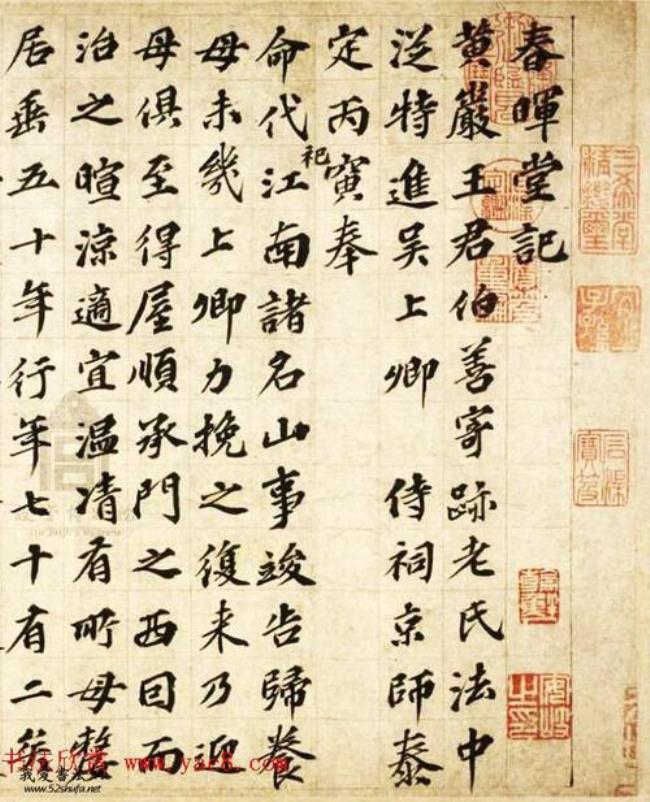 春暉堂記
黄巖王君伯善寄跡老氏法中
從特進吴上卿 侍祠京師泰
定丙寅奉
命代祀江南諸名山事竣告歸養
母未幾上卿力挽之復来乃迎
母俱至得屋順承門之西因而
治之暄涼適宜温凊有所母嫠
居垂五十年行年七十有二矣
書法欣賞 www.yac8.com
我爱書法
www.52shufa.net